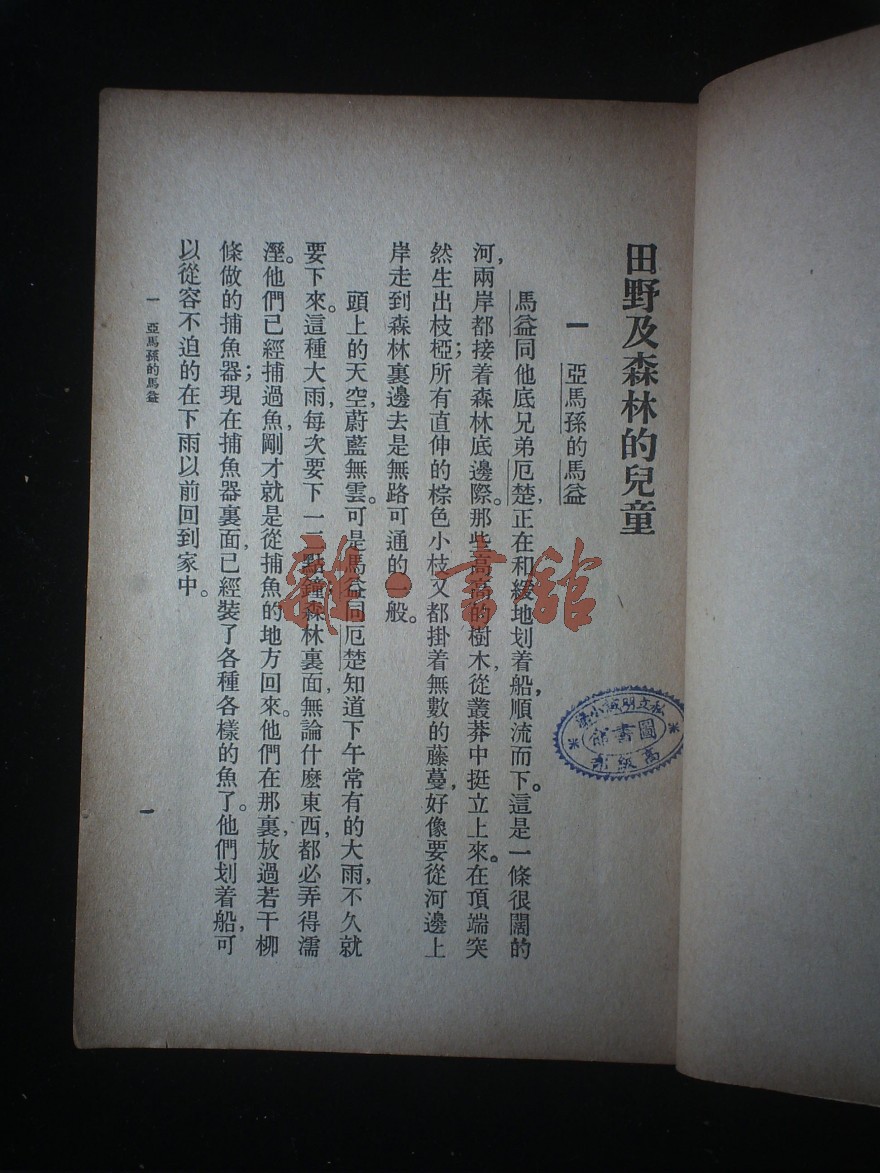 田野及森林的兒童
一　亞馬孫的馬益
馬益同他底兄弟厄楚，正在和緩地划着船，順流而下。這是一條很闊的
河，兩岸都接着森林底邊際。那些高高的樹木，從叢莽中挺立上來。在頂端突
然生出枝椏；所有直伸的棕色小枝又都掛着無數的藤蔓，好像要從河邊上
岸走到森林裏邊去是無路可通的一般。
頭上的天空，蔚藍無雲。可是馬益同厄楚知道下午常有的大雨，不久就
要下來。這種大雨，每次要下一二點鐘；森林裏面，無論什麼東西，都必弄得濡
溼。他們已經捕過魚，剛才就是從捕魚的地方回來。他們在那裏，放過若干柳
條做的捕魚器；現在捕魚器裏面，已經裝了各種各樣的魚了。他們划着船，可
以從容不迫的在下雨以前回到家中。
一　亞馬孫的馬益
一
雜·書館
圖書館
高級部